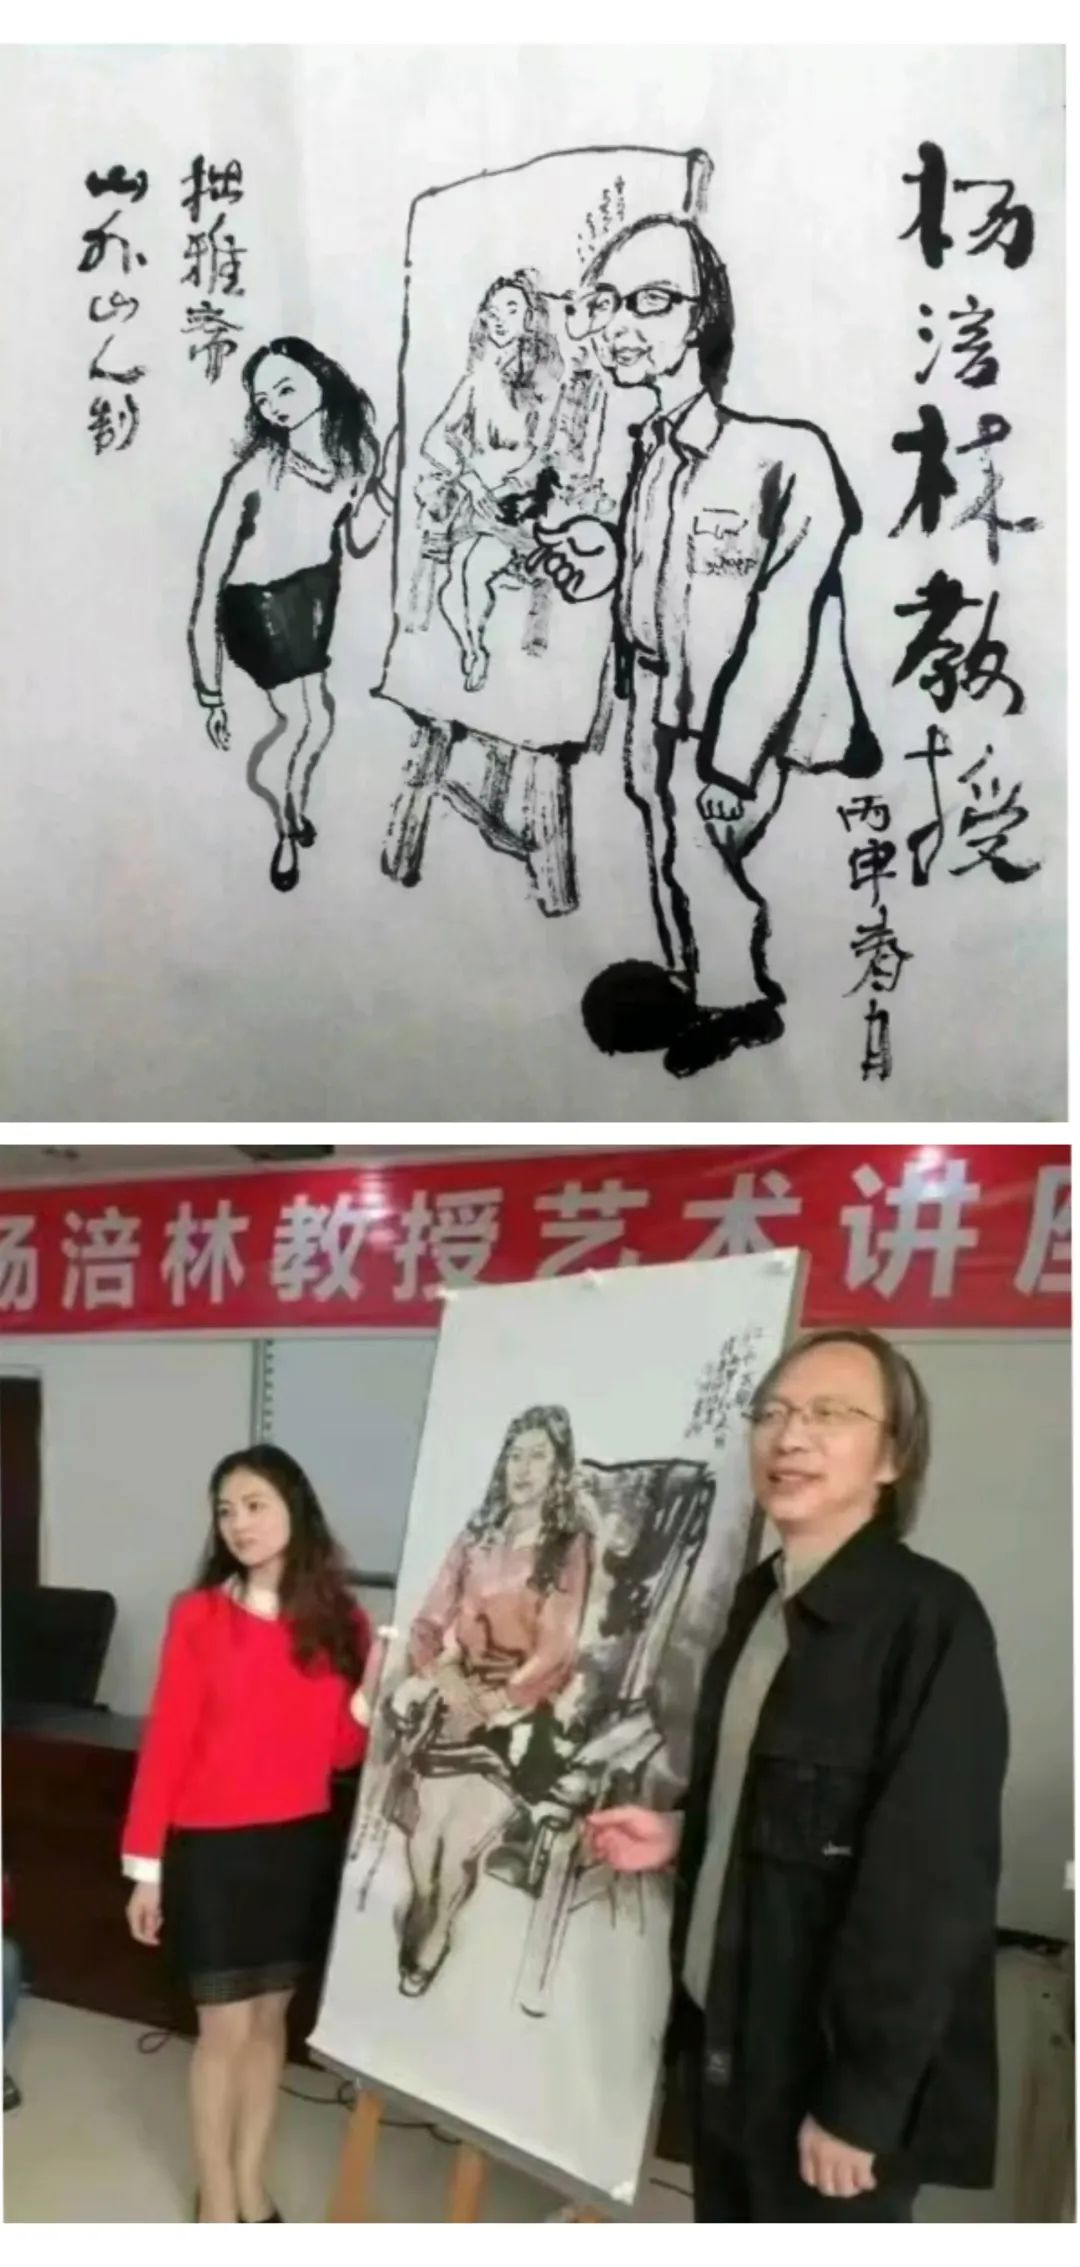 杨涪林教授
丙申春月
拙雅斋
山外山人制
杨涪林教授艺术讲座
Jeep